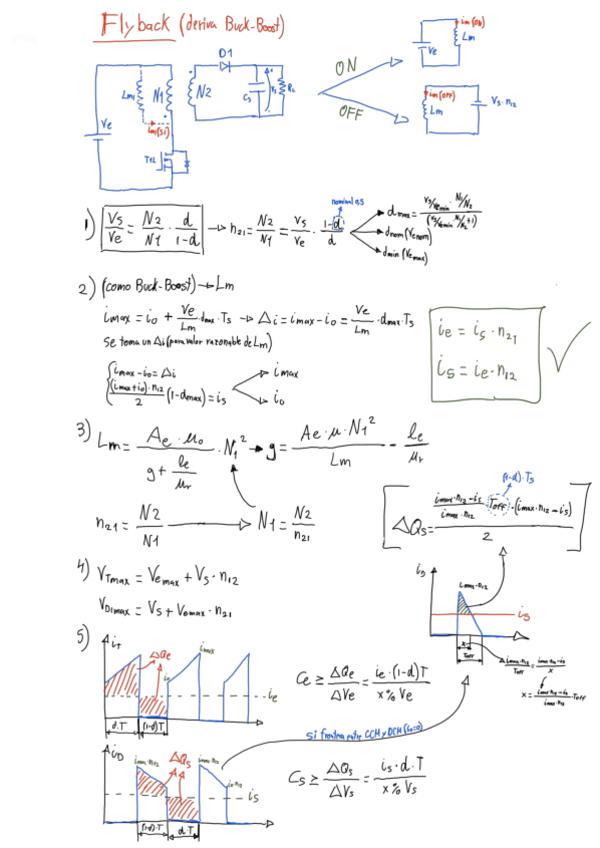 Flyback (deriva Buck-Boost)
D1
im(ON)
Ve
Lm
ON
Lm
N1
N2
Cs
Vs
im(OFF)
Lm
Vs·n12
OFF
Ve
nominal 0.5
1) Vs/Ve = N2/N1 · d/(1-d) → n21 = N2/N1 = Vs/Ve · (1-d)/d
dnom(Venom)
dmin(Vemax)
2) (como Buck-Boost) → Lm
imax = io + Ve/Lm · dmax·Ts → Δi = imax - io = Ve/Lm · dmax·Ts
se toma un Δi (para valor razonable de Lm)
imax - io = Δi
(imax+io)·n12/2 (1-dmax) = is
imax
io
ie = is · n21
is = ie · n12
3) Lm = Ae · μo/(g + le/μr) · N1² → g = Ae · μ · N1²/Lm - le/μr
n21 = N2/N1 → N1 = N2/n21
(1-d)·Ts
ΔQs = (imax·n12 - is)/(imax·n12) · Toff · (imax·n12 - is)/2
4) VTmax = Vemax + Vs · n12
VD1max = Vs + Vemax · n21
is
imax·n12
is
x
Toff
imax·n12/Toff = imax·n12-is/x
x = imax·n12-is/imax·n12 · Toff
5) iT
ΔQe
imax
ie
d·T
(1-d)T
Ce ≥ ΔQe/ΔVe = ie · (1-d)T/x% Ve
si frontera entre CCM y DCM (io=0)
iD
imax·n12
ΔQs
imax·n12
io·n12
is
(1-d)T
d·T
Cs ≥ ΔQs/ΔVs = is · d · T/x% Vs